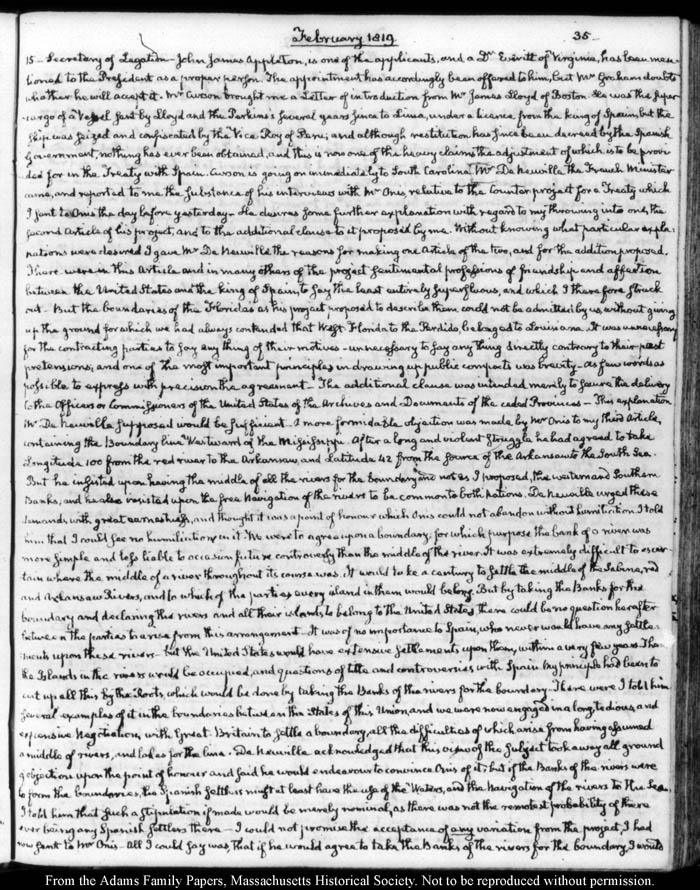 February 1819. 35.
15 - Secretary of Legation - John James Appleton, is one of the applicants, and a Dr Everitt of Virginia, has been men-
tioned to the President as a proper person. The appointment has accordingly been offered to him, but Mr Graham doubts
whether he will accept it. Mr Cuson brought me a Letter of introduction from Mr James Lloyd of Boston. He was the Super
cargo of a Vessel sent by Lloyd and the Perkins's several years since to Lima, under a licence from the king of Spain, but the
Ship was seized and confiscated by the Vice Roy of Peru; and although restitution has since been decreed by the Spanish
Government, nothing has ever been obtained, and this is now one of the heavy claims the adjustment of which is to be provi-
ded for in the Treaty with Spain. Cuson is going on immediately to South Carolina. Mr De Neuville the French Minister
came, and reported to me the substance of his interviews with Mr Onis relative to the Counter project for a Treaty which
I sent to Onis the day before yesterday - He desires some further explanation with regard to my throwing into one, the
second Article of his project, and to the additional clause to it proposed by me. Without knowing what particular expla-
nations were desired I gave Mr De Neuville the reasons for making one Article of the two, and for the addition proposed.
There were in this Article and in many others of the project sentimental professions of friendship and affection
between the United States and the king of Spain, to say the least entirely superfluous, and which I therefore struck
out. But the boundaries of the Floridas as his project proposed to describe them could not be admitted by us, without giving
up the ground for which we had always contended that West Florida to the Perdido, belonged to Louisiana. It was unnecessary
for the contracting parties to say any thing of their motives - unnecessary to say any thing directly contrary to their past
pretensions; and one of the most important principles in drawing up public compacts was brevity - as few words as
possible to express with precision the agreement - The additional clause was intended merely to secure the delivery
to the Officers or Commissioners of the United States of the Archives and Documents of the ceded Provinces - This explanation
Mr De Neuville supposed would be sufficient. A more formidable objection was made by Mr Onis to my third Article,
containing the Boundary line Westward of the Mississippi. After a long and violent struggle he had agreed to take
Longitude 100 from the red river to the Arkansaw, and Latitude 42 from the source of the Arkansaw to the South Sea.
But he insisted upon having the middle of all the rivers for the boundary and not as I proposed, the western and Southern
Banks, and he also insisted upon the free Navigation of the rivers to be common to both Nations. De Neuville urged these
demands with great earnestness, and thought it was a point of honour which Onis could not abandon without humiliation. I told
him that I could see no humiliation in it. We were to agree upon a boundary, for which purpose the bank of a river was
more simple and less liable to occasion future controversy than the middle of the river. It was extremely difficult to ascer-
tain where the middle of a river throughout its course was. It would take a century to settle the middle of the Sabine, red
and Arkansaw Rivers, and to which of the parties every island in them would belong. But by taking the Banks for the
boundary and declaring the rivers and all their islands to belong to the United States there could be no question hereafter
between the parties to arise from this arrangement. It was of no importance to Spain, who never would have any settle-
ments upon these rivers - but the United States would have extensive settlements upon them, within a very few years. Then
the Islands in the rivers would be occupied, and questions of title and controversies with Spain. My principle had been to
cut up all this by the Roots, which would be done by taking the Banks of the rivers for the boundary. There were I told him
several examples of it in the boundaries between the States of this Union, and we were now engaged in a long, tedious, and
expensive Negotiation, with Great Britain to settle a boundary, all the difficulties of which arise from having assumed
a middle of rivers, and lakes for the line. De Neuville acknowledged that this view of the subject took away all ground
of objection upon the point of honour and said he would endeavour to convince Onis of it; but if the Banks of the rivers were
to form the boundaries, the Spanish settlers must at least have the use of the Waters, and the Navigation of the rivers to the Sea.
I told him that such a stipulation if made would be merely nominal, as there was not the remotest probability of there
ever being any Spanish settlers there - I could not promise the acceptance of any variation from the project I had
now sent to Mr Onis - all I could say was, that if he would agree to take the Banks of the rivers for the boundary, I would
From the Adams Family Papers, Massachusetts Historical Society. Not to be reproduced without permission.